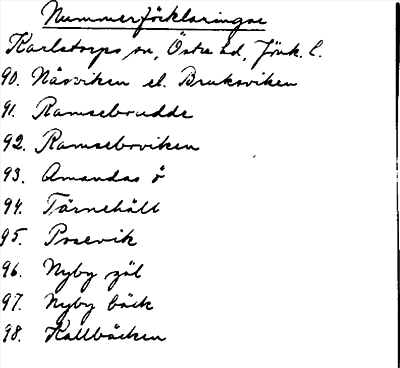 Nummerförklaringar
Karlstorps sn, Östra hd, Jönk. l.
90. Näsviken el. Bruksviken
91. Ramsebrudde
92. Ramsebroviken
93. Amandas ö
94. Tärnehäll
95. Prosevik
96. Nyby göl
97. Nyby bäck
98. Kallbäcken